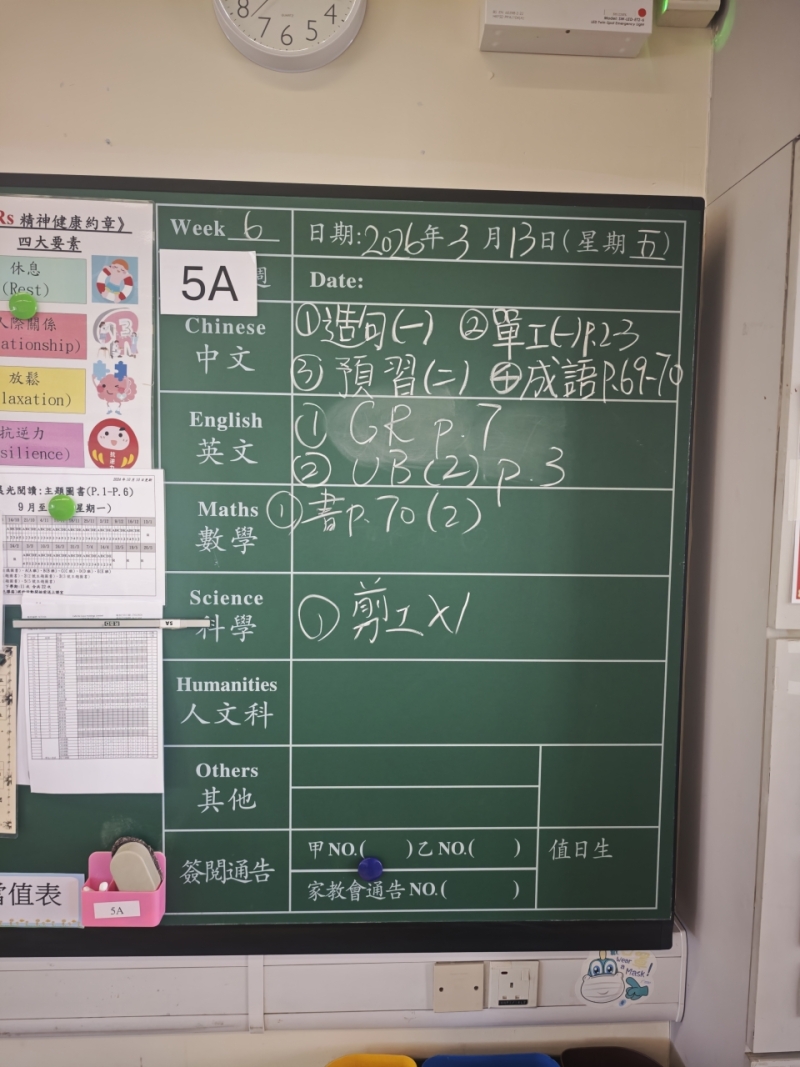 8 7 6 5 4
Rs 精神健康約章》
四大要素
休息
(Rest)
人際關係
ationship)
放鬆
laxation)
抗逆力
silience)
晨光閱讀:主題圖書(P.1-P.6)
Week 6
日期:2026年3月13日(星期五)
5A
週
Date:
Chinese
中文
①造句(一) ②單工(一)p.2-3
③預習(二) ④成語p.69-70
English
英文
① GR p.7
② UB(2) p.3
Maths
數學
①書p.70(2)
Science
科學
① 剪工 X1
Humanities
人文科
Others
其他
簽閱通告
甲NO.( )乙NO.( )
家教會通告NO.( )
值日生
當值表
5A
Wear
a
Mask!